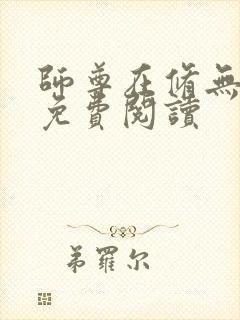 師尊在脩無
免費閱讀
弟羅尔